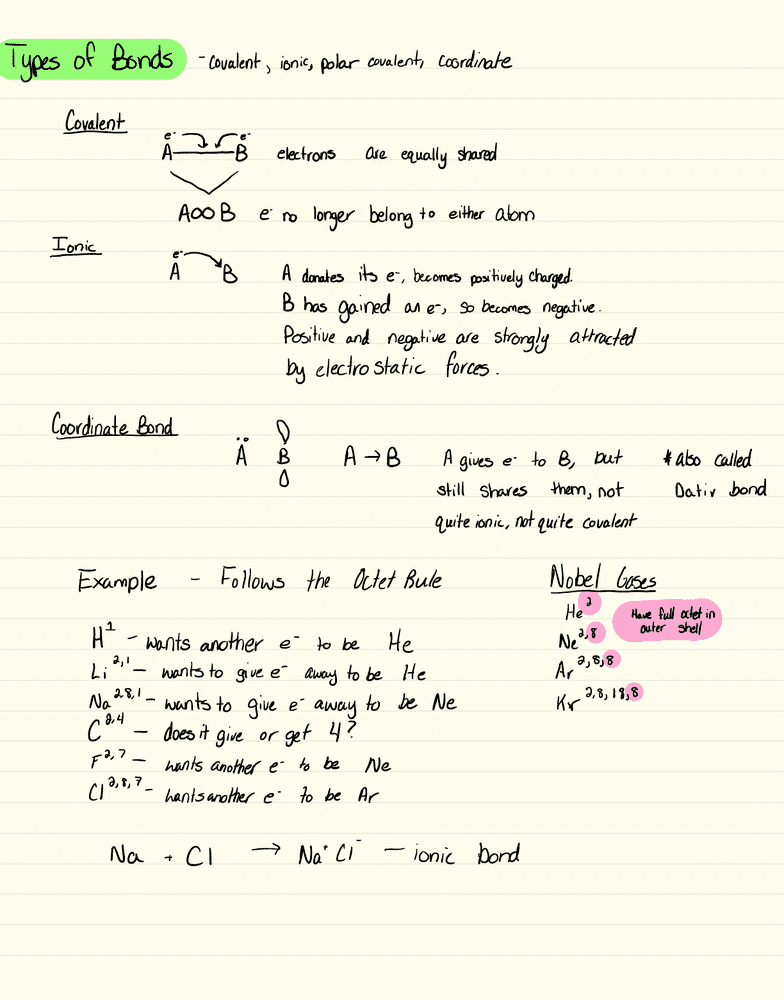 Types of Bonds - covalent, ionic, polar covalent, coordinate
Covalent
e⁻ e⁻
A B electrons are equally shared
A∞B e⁻ no longer belong to either atom
Ionic
e⁻
A B A donates its e⁻, becomes positively charged.
B has gained an e⁻, so becomes negative.
Positive and negative are strongly attracted
by electrostatic forces.
Coordinate Bond
Ä B A → B A gives e⁻ to B, but
still shares them, not
quite ionic, not quite covalent
* also called
Dativ bond
Example - Follows the Octet Rule
H¹ - wants another e⁻ to be He
Li²,¹ - wants to give e⁻ away to be He
Na²,⁸,¹ - wants to give e⁻ away to be Ne
C²,⁴ - does it give or get 4?
F²,⁷ - wants another e⁻ to be Ne
Cl²,⁸,⁷ - wants another e⁻ to be Ar
Nobel Gases
He²
Ne²,⁸
Ar²,⁸,⁸
Kr²,⁸,¹⁸,⁸
Have full octet in
outer shell
Na + Cl → Na⁺ Cl⁻ - ionic bond